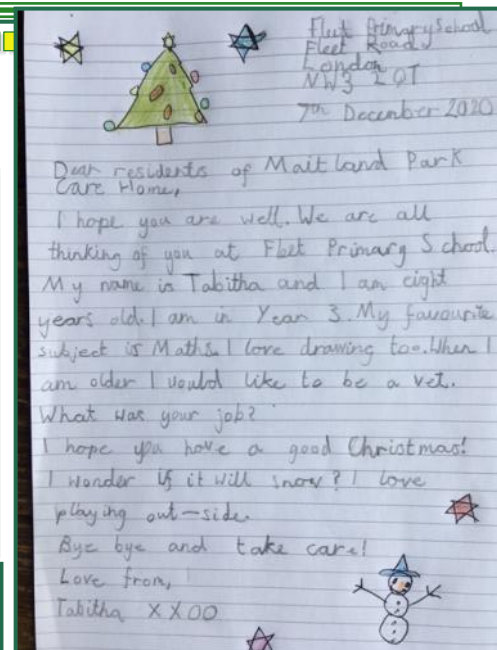 Fleet Primary School
Fleet Road
London
NW3 2QT
7th December 2020
Dear residents of Maitland Park
Care Home,
I hope you are well. We are all
thinking of you at Fleet Primary School.
My name is Tabitha and I am eight
years old. I am in Year 3. My favourite
subject is Maths. I love drawing too. When I
am older I would like to be a vet.
What was your job?
I hope you have a good Christmas!
I wonder if it will snow? I love
playing out-side.
Bye bye and take care!
Love from,
Tabitha XXOO